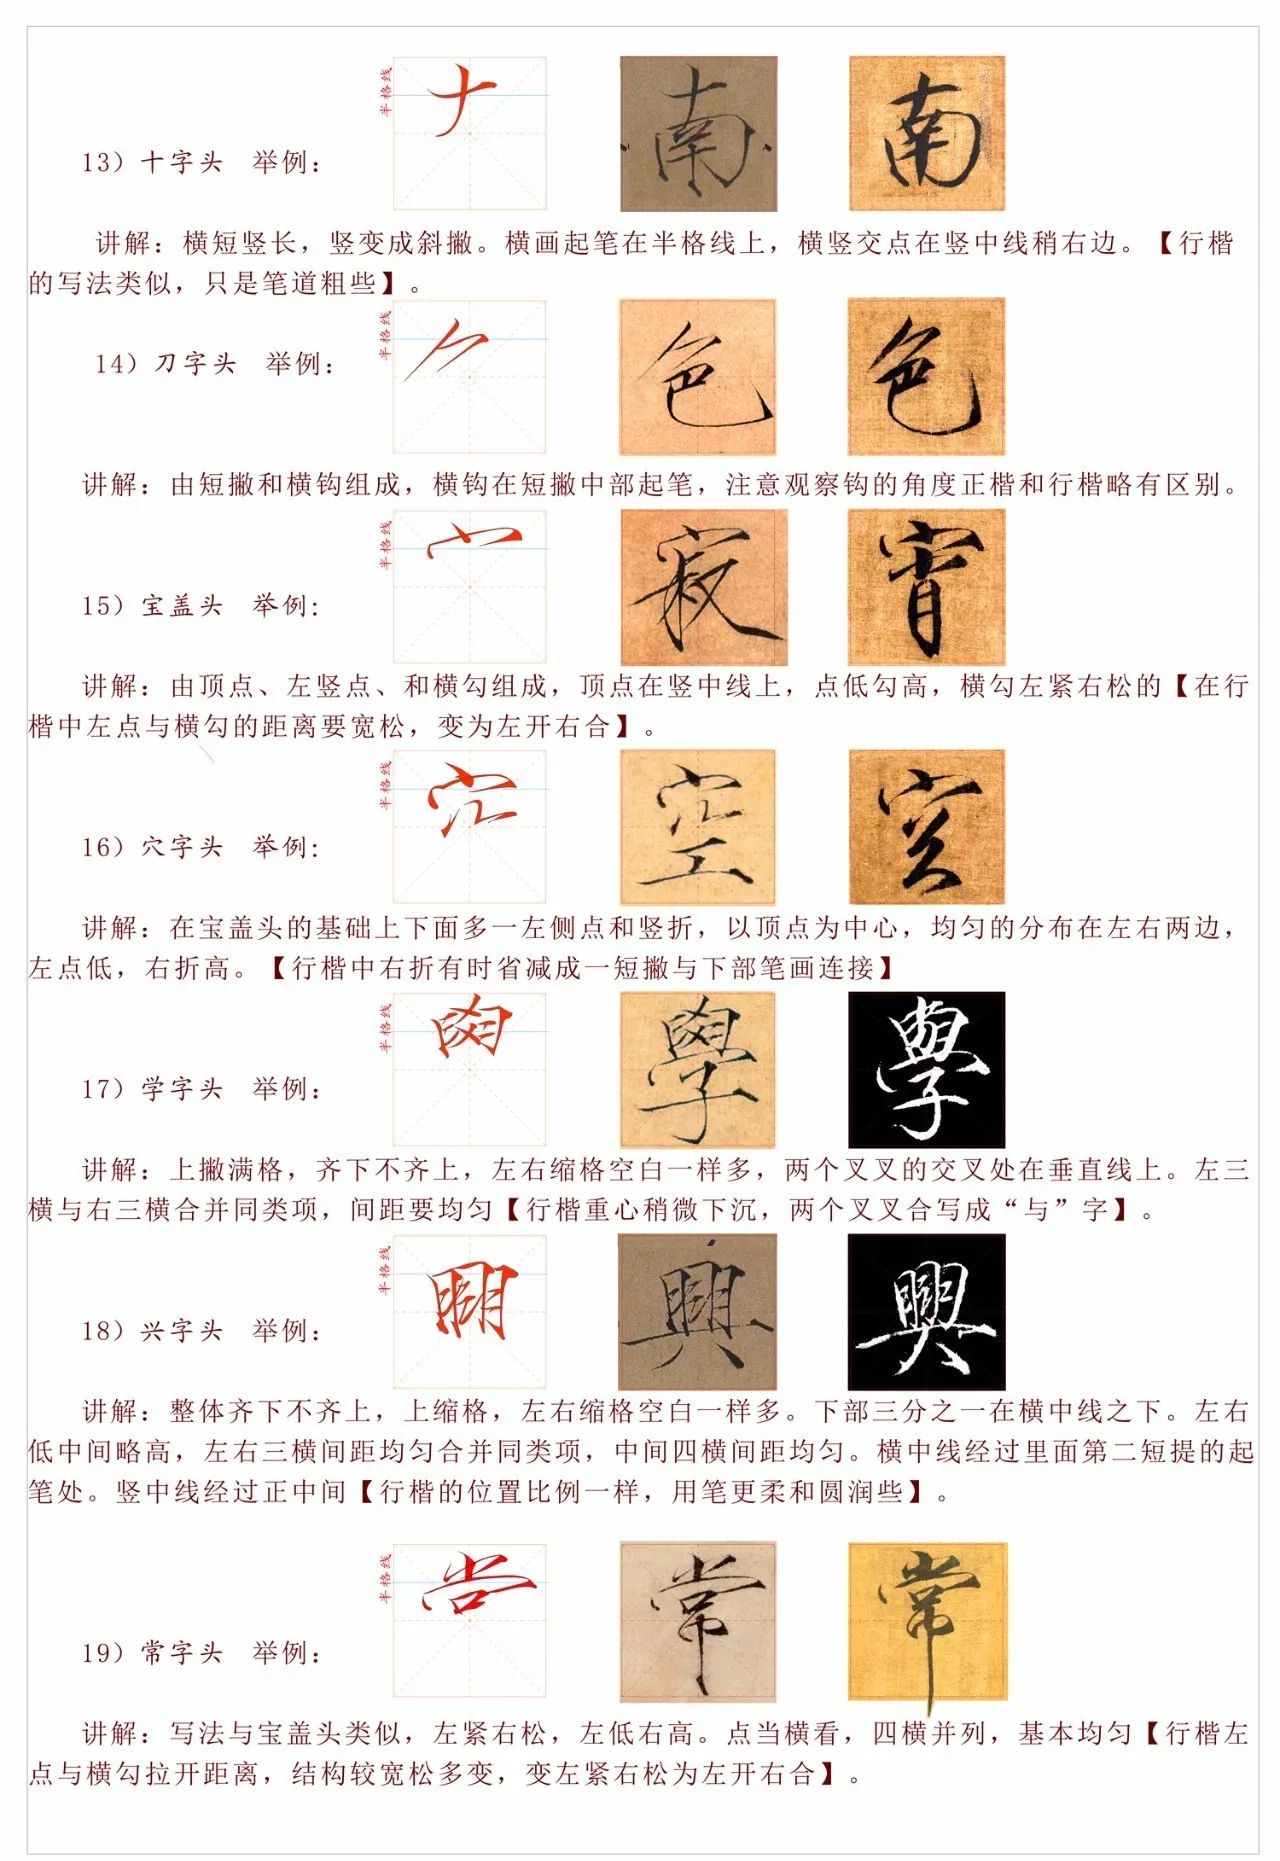 半格线
十
南
南
13）十字头 举例：
讲解：横短竖长，竖变成斜撇。横画起笔在半格线上，横竖交点在竖中线稍右边。【行楷
的写法类似，只是笔道粗些】。
半格线
色
色
14）刀字头 举例：
讲解：由短撇和横钩组成，横钩在短撇中部起笔，注意观察钩的角度正楷和行楷略有区别。
半格线
寂
宵
15）宝盖头 举例：
讲解：由顶点、左竖点、和横勾组成，顶点在竖中线上，点低勾高，横勾左紧右松的【在行
楷中左点与横勾的距离要宽松，变为左开右合】。
半格线
空
16）穴字头 举例：
讲解：在宝盖头的基础上下面多一左侧点和竖折，以顶点为中心，均匀的分布在左右两边，
左点低，右折高。【行楷中右折有时省减成一短撇与下部笔画连接】
半格线
學
學
17）学字头 举例：
讲解：上撇满格，齐下不齐上，左右缩格空白一样多，两个叉叉的交叉处在垂直线上。左三
横与右三横合并同类项，间距要均匀【行楷重心稍微下沉，两个叉叉合写成“与”字】。
半格线
興
興
18）兴字头 举例：
讲解：整体齐下不齐上，上缩格，左右缩格空白一样多。下部三分之一在横中线之下。左右
低中间略高，左右三横间距均匀合并同类项，中间四横间距均匀。横中线经过里面第二短提的起
笔处。竖中线经过正中间【行楷的位置比例一样，用笔更柔和圆润些】。
半格线
常
常
19）常字头 举例：
讲解：写法与宝盖头类似，左紧右松，左低右高。点当横看，四横并列，基本均匀【行楷左
点与横勾拉开距离，结构较宽松多变，变左紧右松为左开右合】。